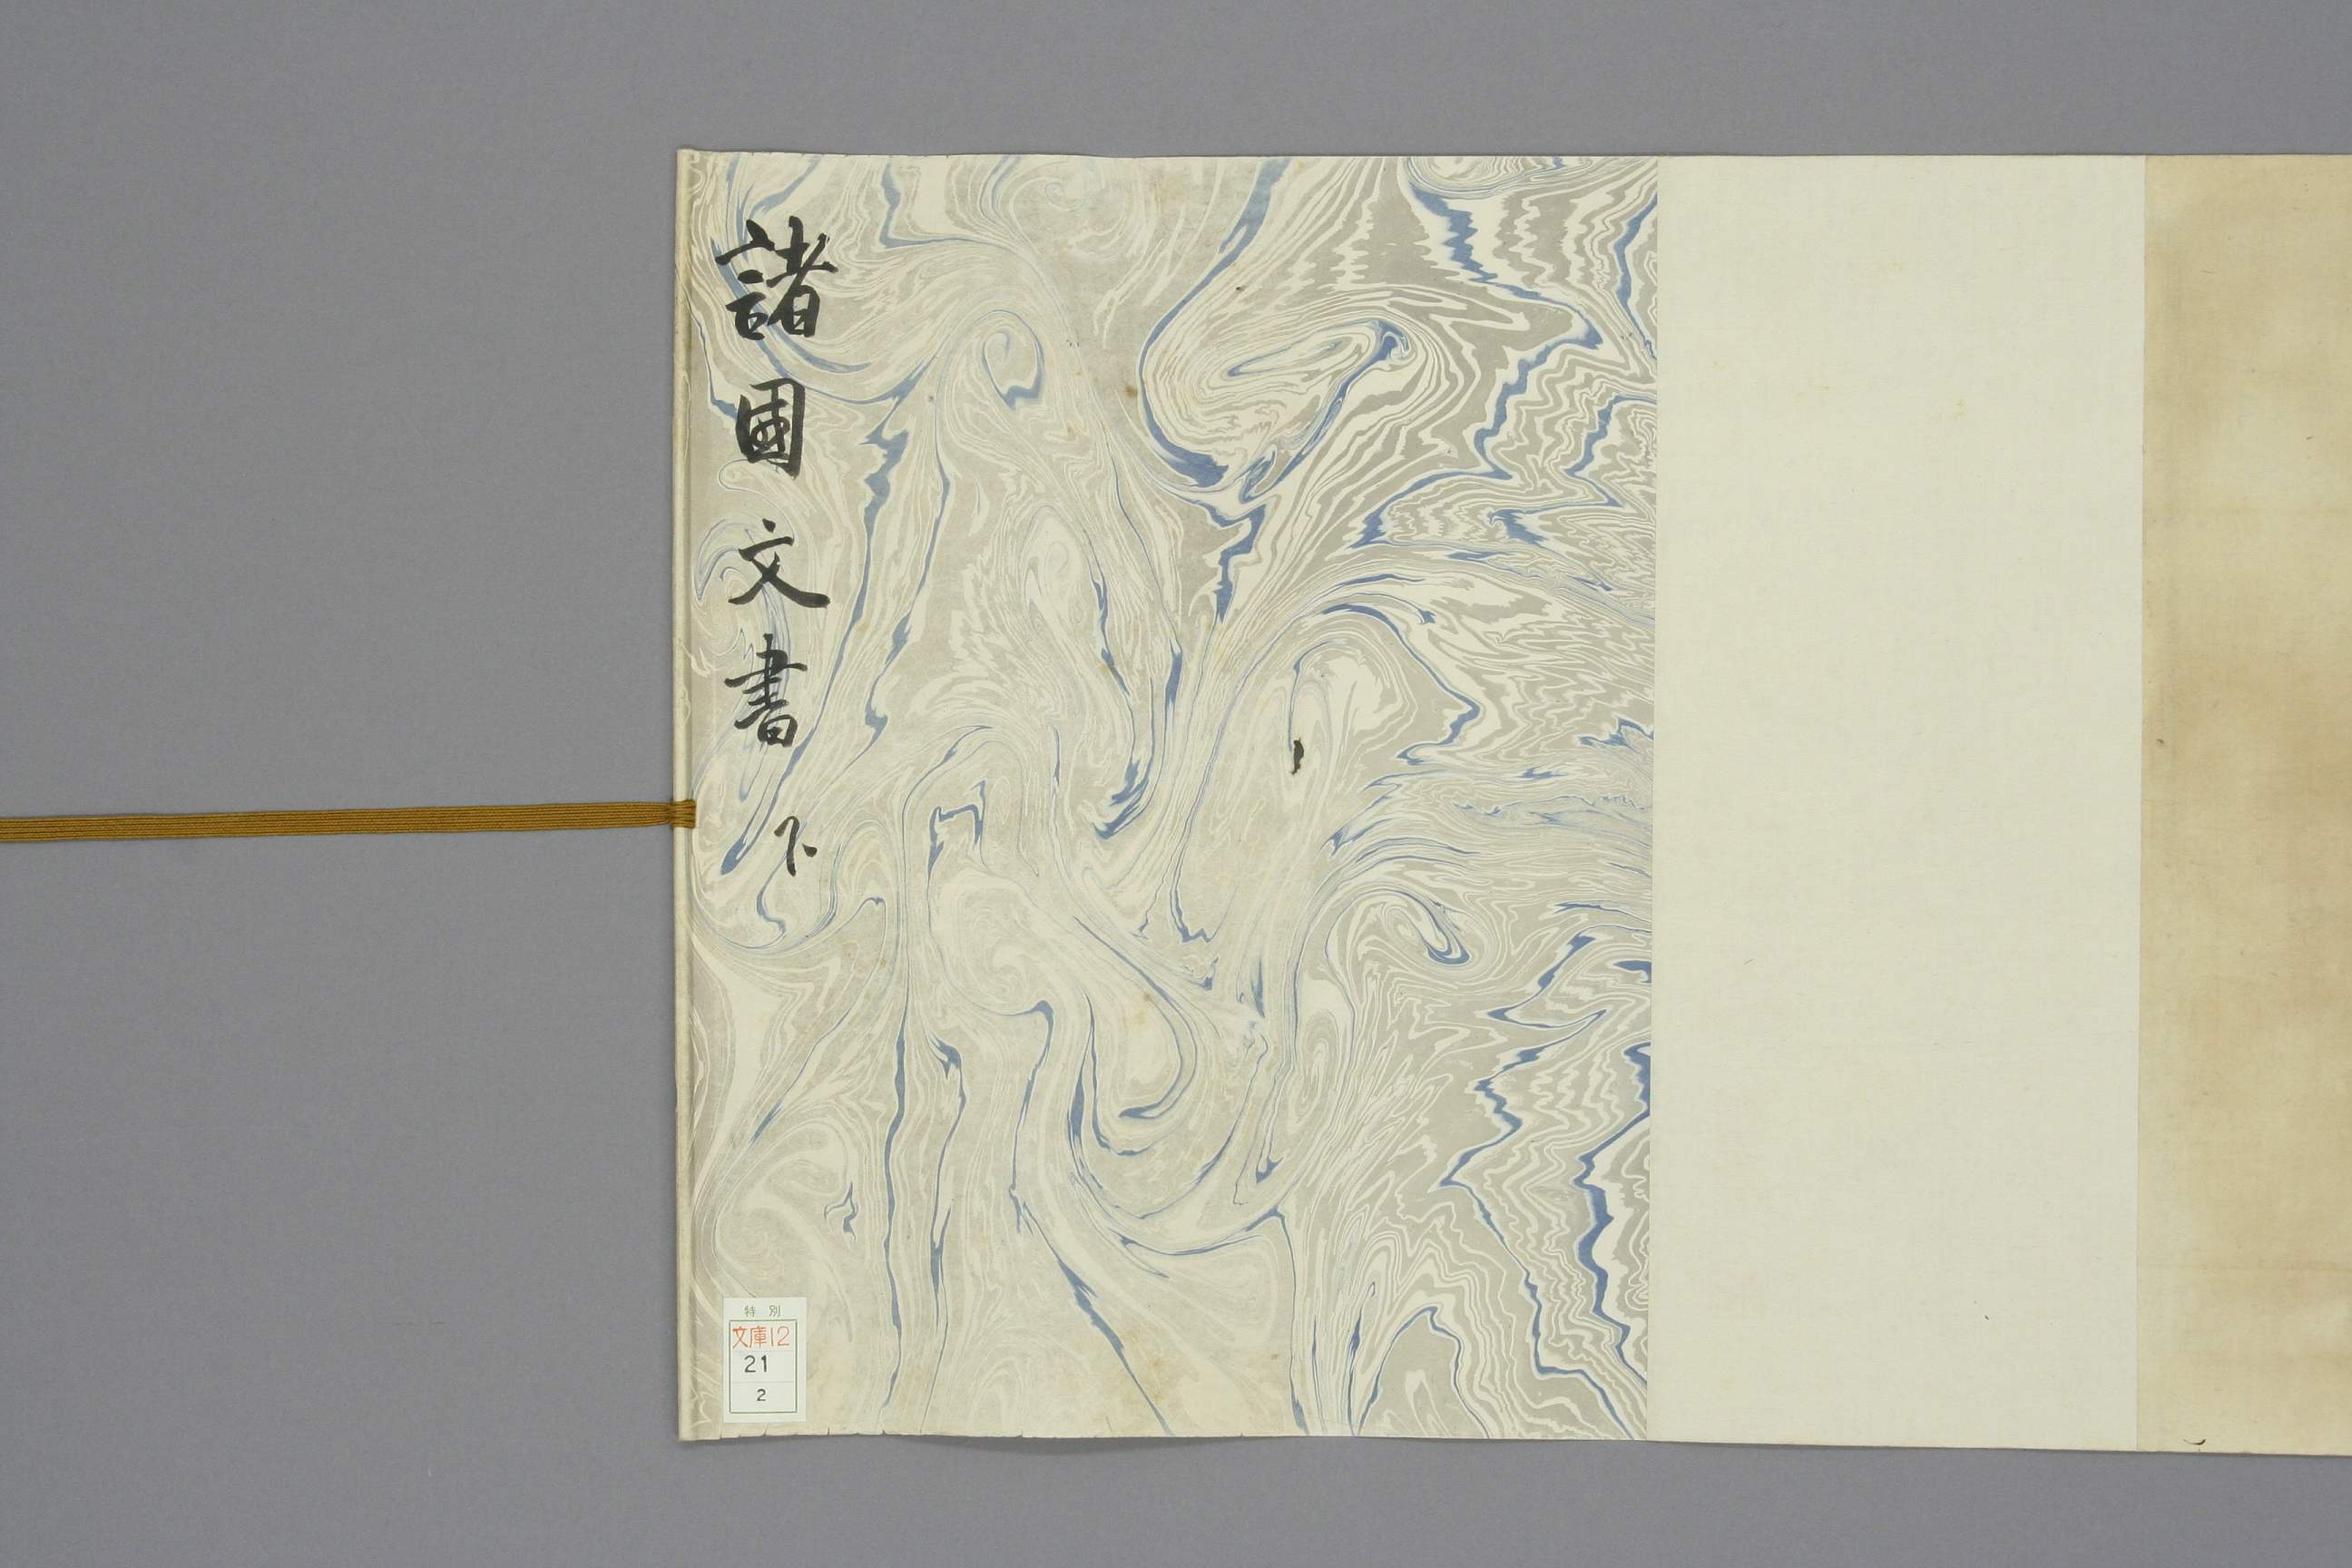 諸國文書 下
特別
文庫12
21
2